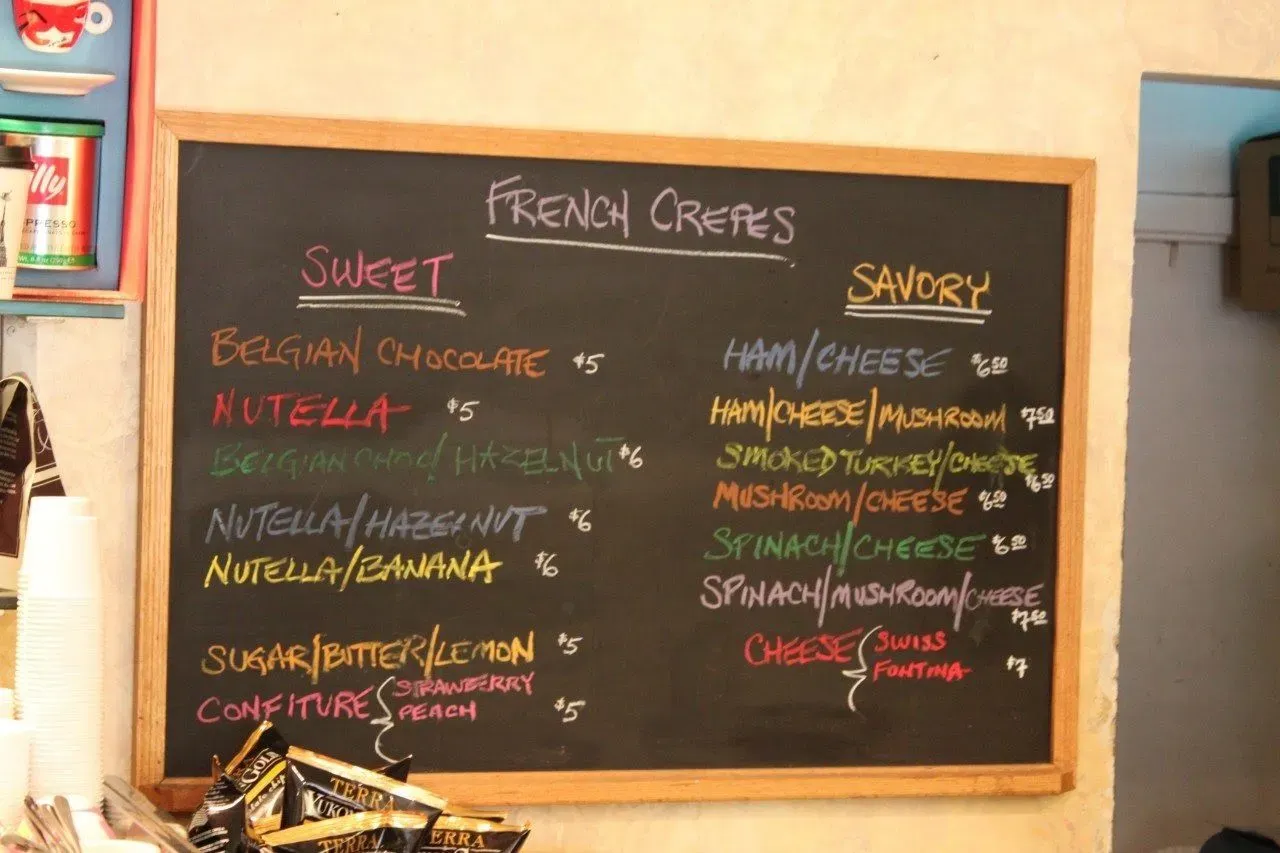 FRENCH CREPES
SWEET
BELGIAN CHOCOLATE $5
NUTELLA $5
BELGIAN CHOC/HAZELNUT $6
NUTELLA/HAZELNUT $6
NUTELLA/BANANA $6
SUGAR/BITTER/LEMON $5
CONFITURE { STRAWBERRY
PEACH $5
SAVORY
HAM/CHEESE $6.50
HAM/CHEESE/MUSHROOM $7.50
SMOKED TURKEY/CHEESE
$6.50
MUSHROOM/CHEESE $6.50
SPINACH/CHEESE $6.50
SPINACH/MUSHROOM/CHEESE
$7.50
CHEESE { SWISS
FONTINA $7
illy
TERRA
YUKON
TERRA